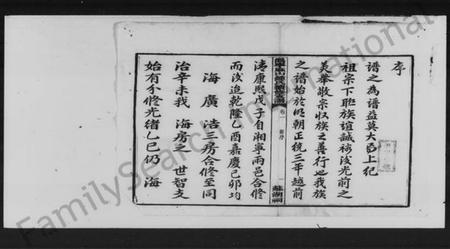 序
譜之為譜益莫大焉上紀
祖宗下聯族誼誠裕後光前之
美舉敬宗收族之善行也我族
之譜始於明朝正統三年越前
清康熙戊子自湘寧兩邑合修
而後進乾隆乙酉嘉慶己卯均
海廣浩三房合修至同
治辛未我海房之世智支
始有分修光緒乙巳仍海
FamilySearch International